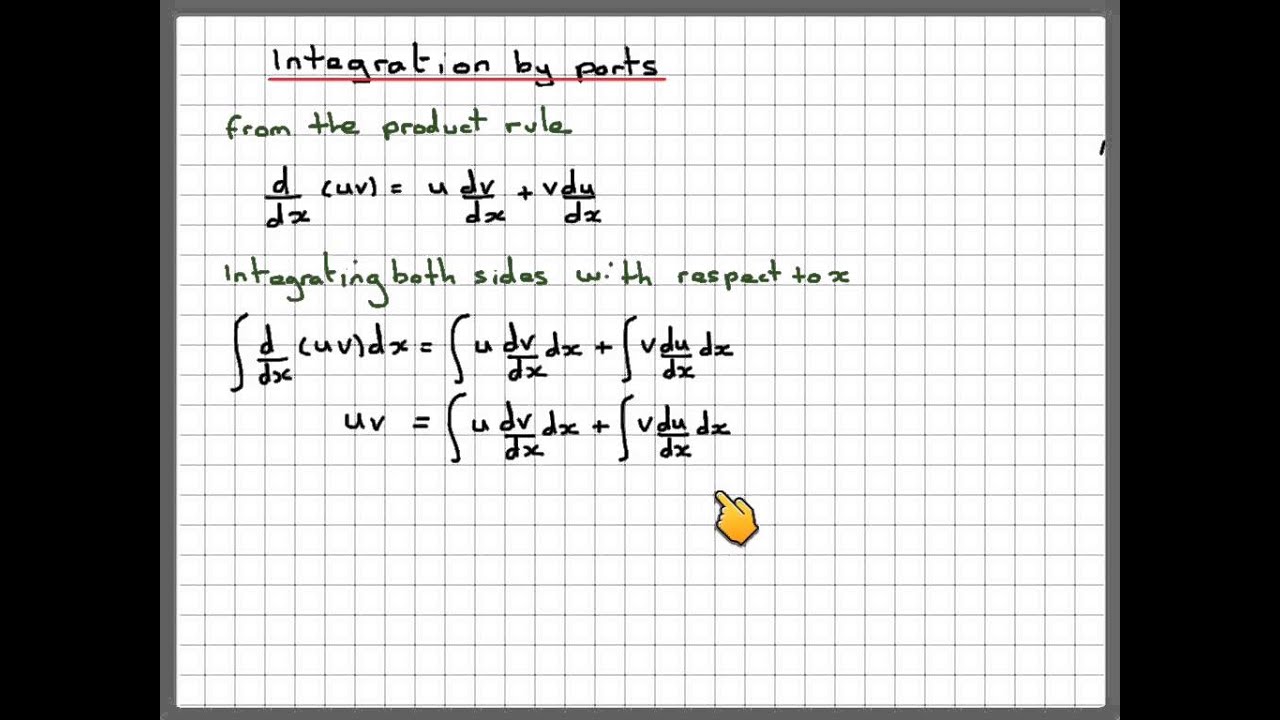 Integration by parts
from the product rule
d/dx (uv) = u dv/dx + v du/dx
Integrating both sides with respect to x
∫ d/dx (uv) dx = ∫ u dv/dx dx + ∫ v du/dx dx
uv = ∫ u dv/dx dx + ∫ v du/dx dx